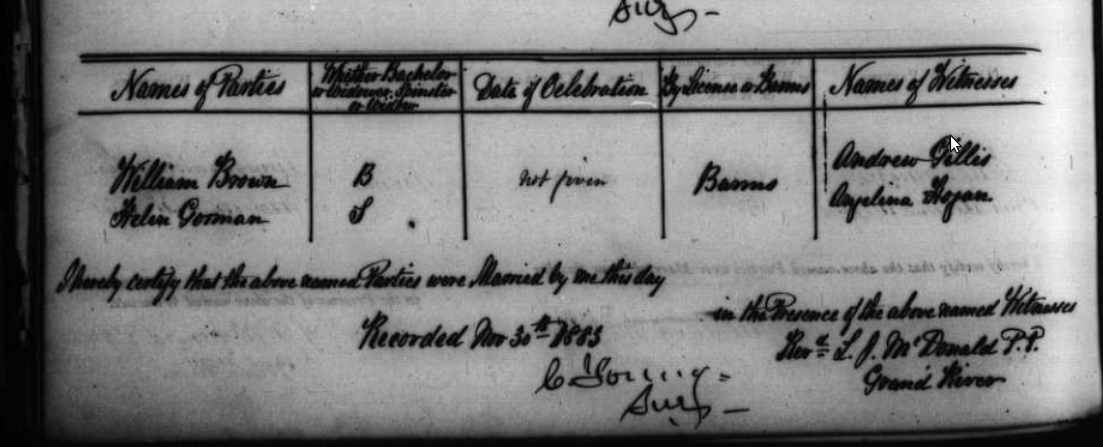 Surg –
Names of Parties
Whether Bachelor
or Widower, Spinster
or Widow
Date of Celebration
By License or Banns
Names of Witnesses
William Brown
Helen Gorman
B
S
not given
Banns
Andrew Gillis
Angelina Hogan
I hereby certify that the above named Parties were Married by me this day
in the Presence of the above named Witnesses
Revd L. J. McDonald P.P.
Grand River
Recorded Nov 30th 1883
C Young
Surg –